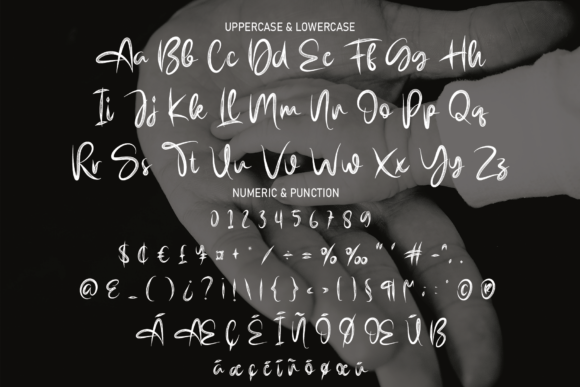 UPPERCASE & LOWERCASE
Aa Bb Cc Dd Ee Ff Gg Hh
Ii Jj Kk Ll Mm Nn Oo Pp Qq
Rr Ss Tt Uu Vv Ww Xx Yy Zz
NUMERIC & PUNCTION
0 1 2 3 4 5 6 7 8 9
$ ¢ € £ ¥ ¤ + * / ÷ = % ‰ “ ‘ # - ~ . .
@ & _ ( ) ¿ ? ¡ ! \ | { } < > [ ] § ¶ : ; ' © ®
Á Æ Ç É Í Ñ Õ Ø Œ Ú ß
á æ ç é í ñ õ ø œ ú